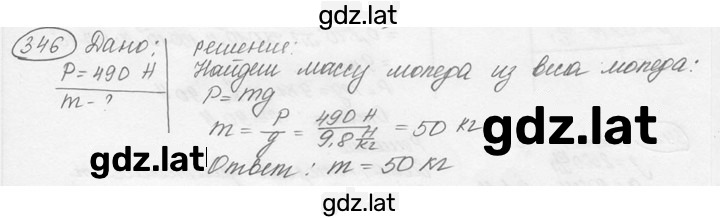 gdz.lat
346 Дано: решение:
P = 490 Н Найдем массу мопеда из веса мопеда:
m - ? P = mg
m = P/g = 490 Н / 9,8 Н/кг = 50 кг
gdz.lat
gdz.lat
Ответ: m = 50 кг
gdz.lat